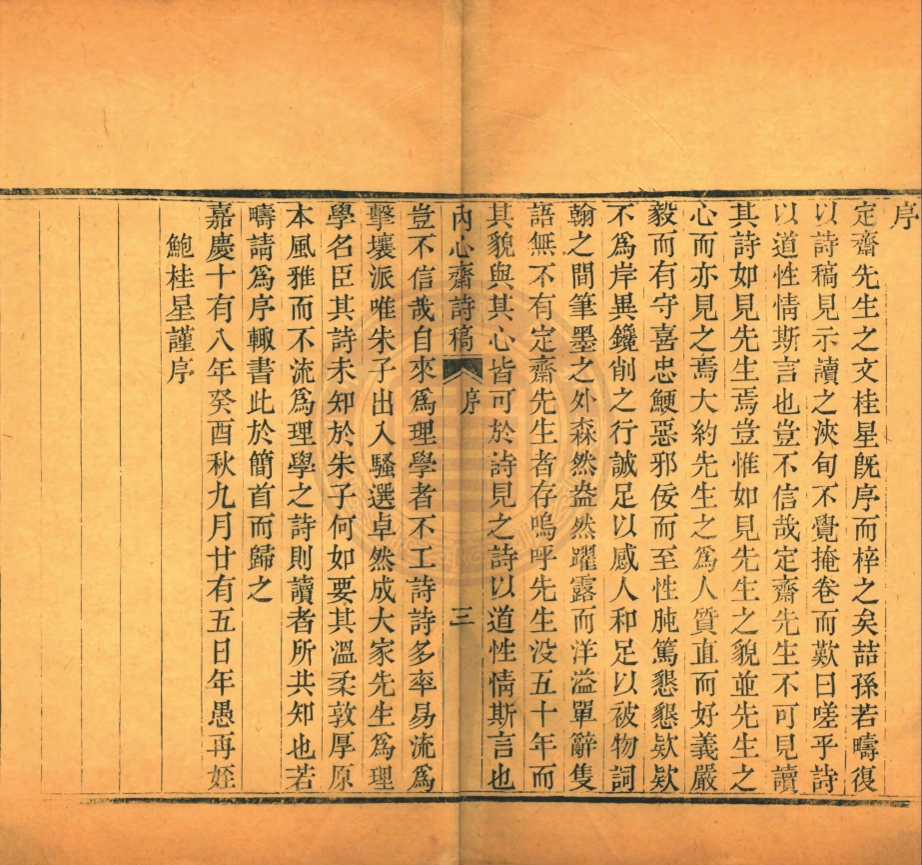 序
定齋先生之文桂星旣序而梓之矣喆孫若疇復
以詩稿見示讀之浹旬不覺掩卷而歎曰嗟乎詩
以道性情斯言也豈不信哉定齋先生不可見讀
其詩如見先生焉豈惟如見先生之貌並先生之
心而亦見之焉大約先生之爲人質直而好義嚴
毅而有守喜忠鯁惡邪佞而至性肫篤懇懇欵欵
不爲岸異鑱削之行誠足以感人和足以被物詞
翰之間筆墨之外森然盎然躍露而洋溢單辭隻
語無不有定齋先生者存嗚呼先生没五十年而
其貌與其心皆可於詩見之詩以道性情斯言也
內心齋詩稿 序 三
豈不信哉自來爲理學者不工詩詩多率易流爲
擊壤派唯朱子出入騷選卓然成大家先生爲理
學名臣其詩未知於朱子何如要其溫柔敦厚原
本風雅而不流爲理學之詩則讀者所共知也若
疇請爲序輙書此於簡首而歸之
嘉慶十有八年癸酉秋九月廿有五日年愚再姪
鮑桂星謹序